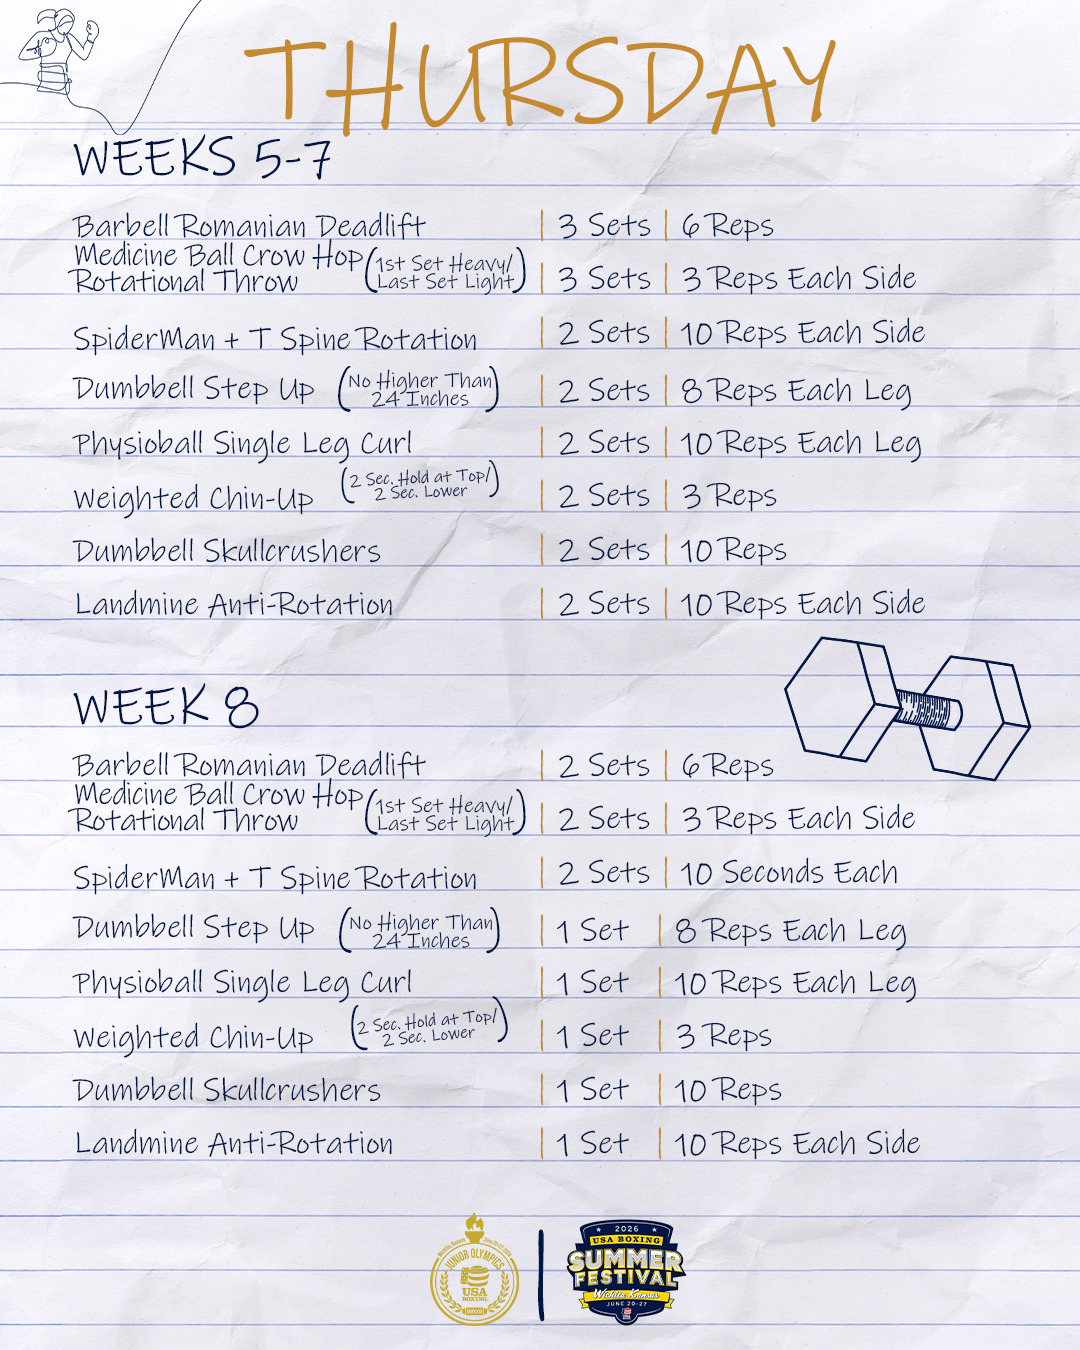 THURSDAY
WEEKS 5-7
Barbell Romanian Deadlift | 3 Sets | 6 Reps
Medicine Ball Crow Hop Rotational Throw (1st Set Heavy/ Last Set Light) | 3 Sets | 3 Reps Each Side
SpiderMan + T Spine Rotation | 2 Sets | 10 Reps Each Side
Dumbbell Step Up (No Higher Than 24 Inches) | 2 Sets | 8 Reps Each Leg
Physioball Single Leg Curl | 2 Sets | 10 Reps Each Leg
Weighted Chin-Up (2 Sec. Hold at Top/ 2 Sec. Lower) | 2 Sets | 3 Reps
Dumbbell Skullcrushers | 2 Sets | 10 Reps
Landmine Anti-Rotation | 2 Sets | 10 Reps Each Side
WEEK 8
Barbell Romanian Deadlift | 2 Sets | 6 Reps
Medicine Ball Crow Hop Rotational Throw (1st Set Heavy/ Last Set Light) | 2 Sets | 3 Reps Each Side
SpiderMan + T Spine Rotation | 2 Sets | 10 Seconds Each
Dumbbell Step Up (No Higher Than 24 Inches) | 1 Set | 8 Reps Each Leg
Physioball Single Leg Curl | 1 Set | 10 Reps Each Leg
Weighted Chin-Up (2 Sec. Hold at Top/ 2 Sec. Lower) | 1 Set | 3 Reps
Dumbbell Skullcrushers | 1 Set | 10 Reps
Landmine Anti-Rotation | 1 Set | 10 Reps Each Side
JUNIOR OLYMPICS
USA
BOXING
2026
USA BOXING
SUMMER
FESTIVAL
Wichita Kansas
JUNE 20-27